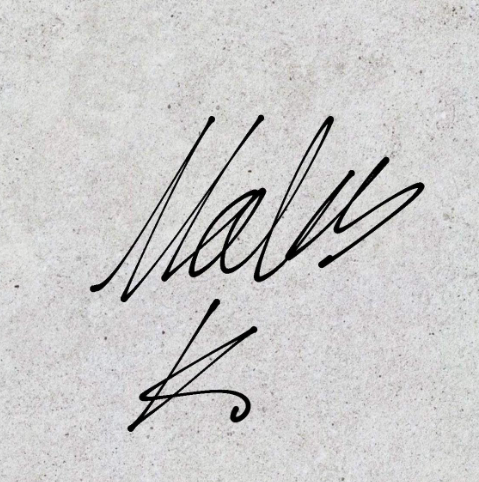 Malus
K